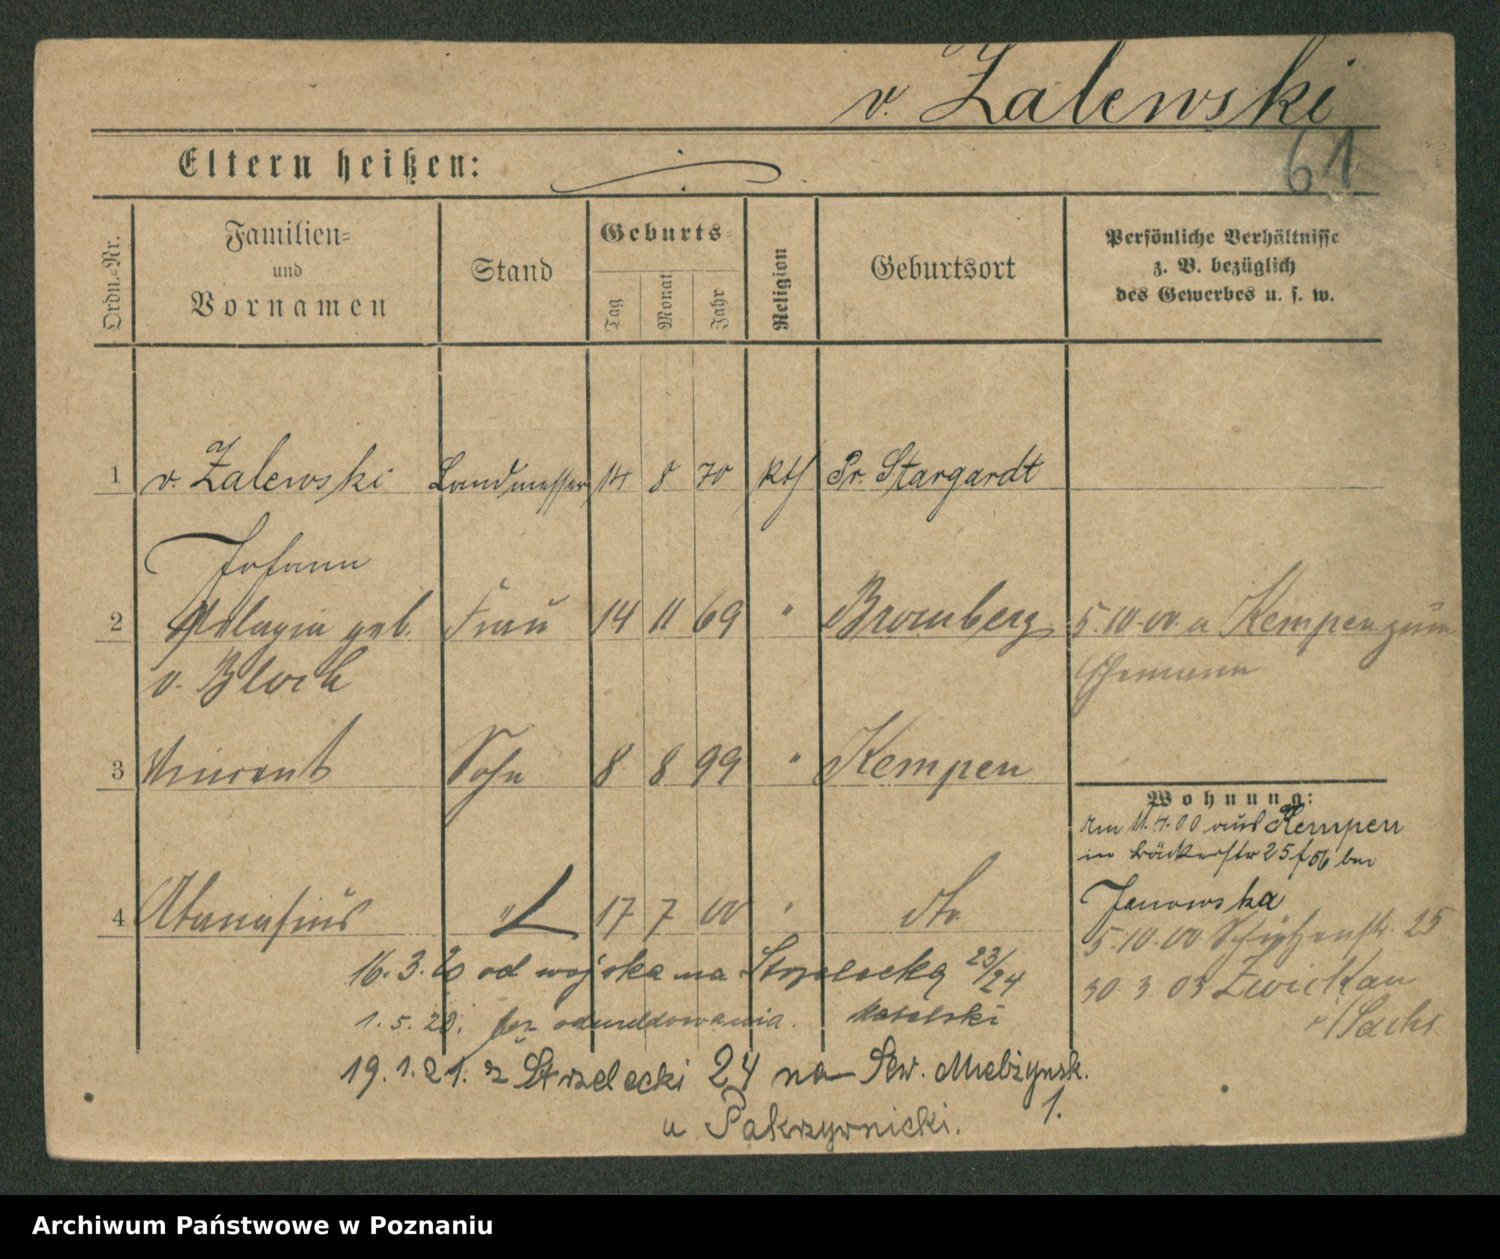 v. Zalewski
61
Eltern heißen:
Ordn.-Nr.
Familien- und Vornamen
Stand
Geburts-
Tag
Monat
Jahr
Religion
Geburtsort
Persönliche Verhältnisse
z. B. bezüglich
des Gewerbes u. s. w.
1 v. Zalewski Landmesser 14 8 70 kth Pr. Stargardt
Johann
2 Pelagia geb. Frau 14 11 69 " Bromberg 5.10.00 a Kempen zum
v. Bloch Ehemann
3 Vincent Sohn 8 8 99 " Kempen
Wohnung:
Am 11.7.00 aus Kempen
in Bäckerstr 25 f 56 bei
Janowska
4 Atanasius " 17 7 00 " dto
5.10.00 Schützenstr. 25
30 3 03 Zwickau
i/Sachs
16.3.20 od wojska na Strzelecką 23/24
1.5.20. bez odmeldowania. katolski
19.1.21. z Strzelecki 24 na Sew. Mielżynsk.
1.
u Pakrzywnicki.
Archiwum Państwowe w Poznaniu